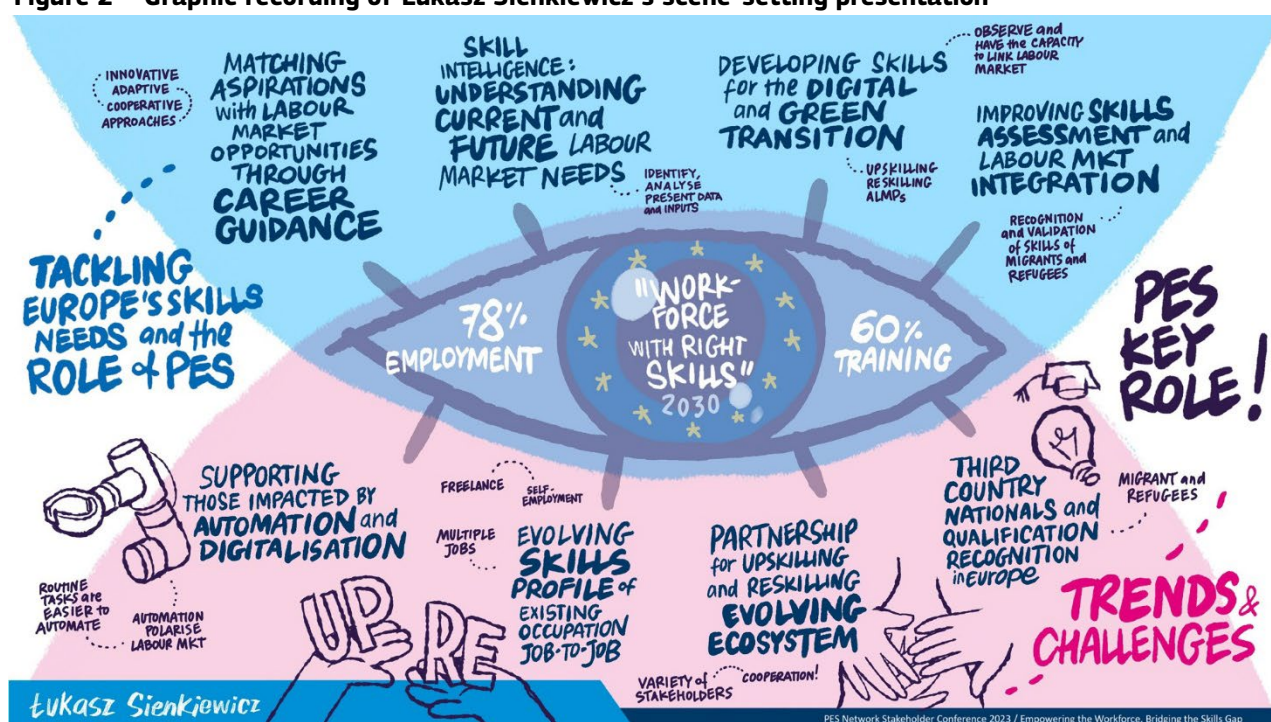 Figure 2 Graphic recording of Łukasz Sienkiewicz's scene-setting presentation
INNOVATIVE
ADAPTIVE
COOPERATIVE
APPROACHES
MATCHING
ASPIRATIONS
with LABOUR
MARKET
OPPORTUNITIES
THROUGH
CAREER
GUIDANCE
SKILL
INTELLIGENCE:
UNDERSTANDING
CURRENT and
FUTURE LABOUR
MARKET NEEDS
IDENTIFY,
ANALYSE
PRESENT DATA
and INPUTS
DEVELOPING SKILLS
for the DIGITAL
and GREEN
TRANSITION
UPSKILLING
RESKILLING
ALMPs
OBSERVE and
HAVE the CAPACITY
to LINK LABOUR
MARKET
IMPROVING SKILLS
ASSESSMENT and
LABOUR MKT
INTEGRATION
RECOGNITION
and VALIDATION
of SKILLS of
MIGRANTS and
REFUGEES
TACKLING
EUROPE'S SKILLS
NEEDS and the
ROLE of PES
78%
EMPLOYMENT
"WORK-
FORCE
WITH RIGHT
SKILLS"
2030
60%
TRAINING
PES
KEY
ROLE!
SUPPORTING
THOSE IMPACTED BY
AUTOMATION and
DIGITALISATION
ROUTINE
TASKS are
EASIER to
AUTOMATE
AUTOMATION
POLARISE
LABOUR MKT
UP RE
FREELANCE
SELF-
EMPLOYMENT
MULTIPLE
JOBS
EVOLVING
SKILLS
PROFILE of
EXISTING
OCCUPATION
JOB-TO-JOB
PARTNERSHIP
for UPSKILLING
and RESKILLING
EVOLVING
ECOSYSTEM
VARIETY of
STAKEHOLDERS
COOPERATION!
THIRD
COUNTRY
NATIONALS and
QUALIFICATION
RECOGNITION
in Europe
MIGRANT and
REFUGEES
TRENDS &
CHALLENGES
Łukasz Sienkiewicz
PES Network Stakeholder Conference 2023 / Empowering the Workforce, Bridging the Skills Gap